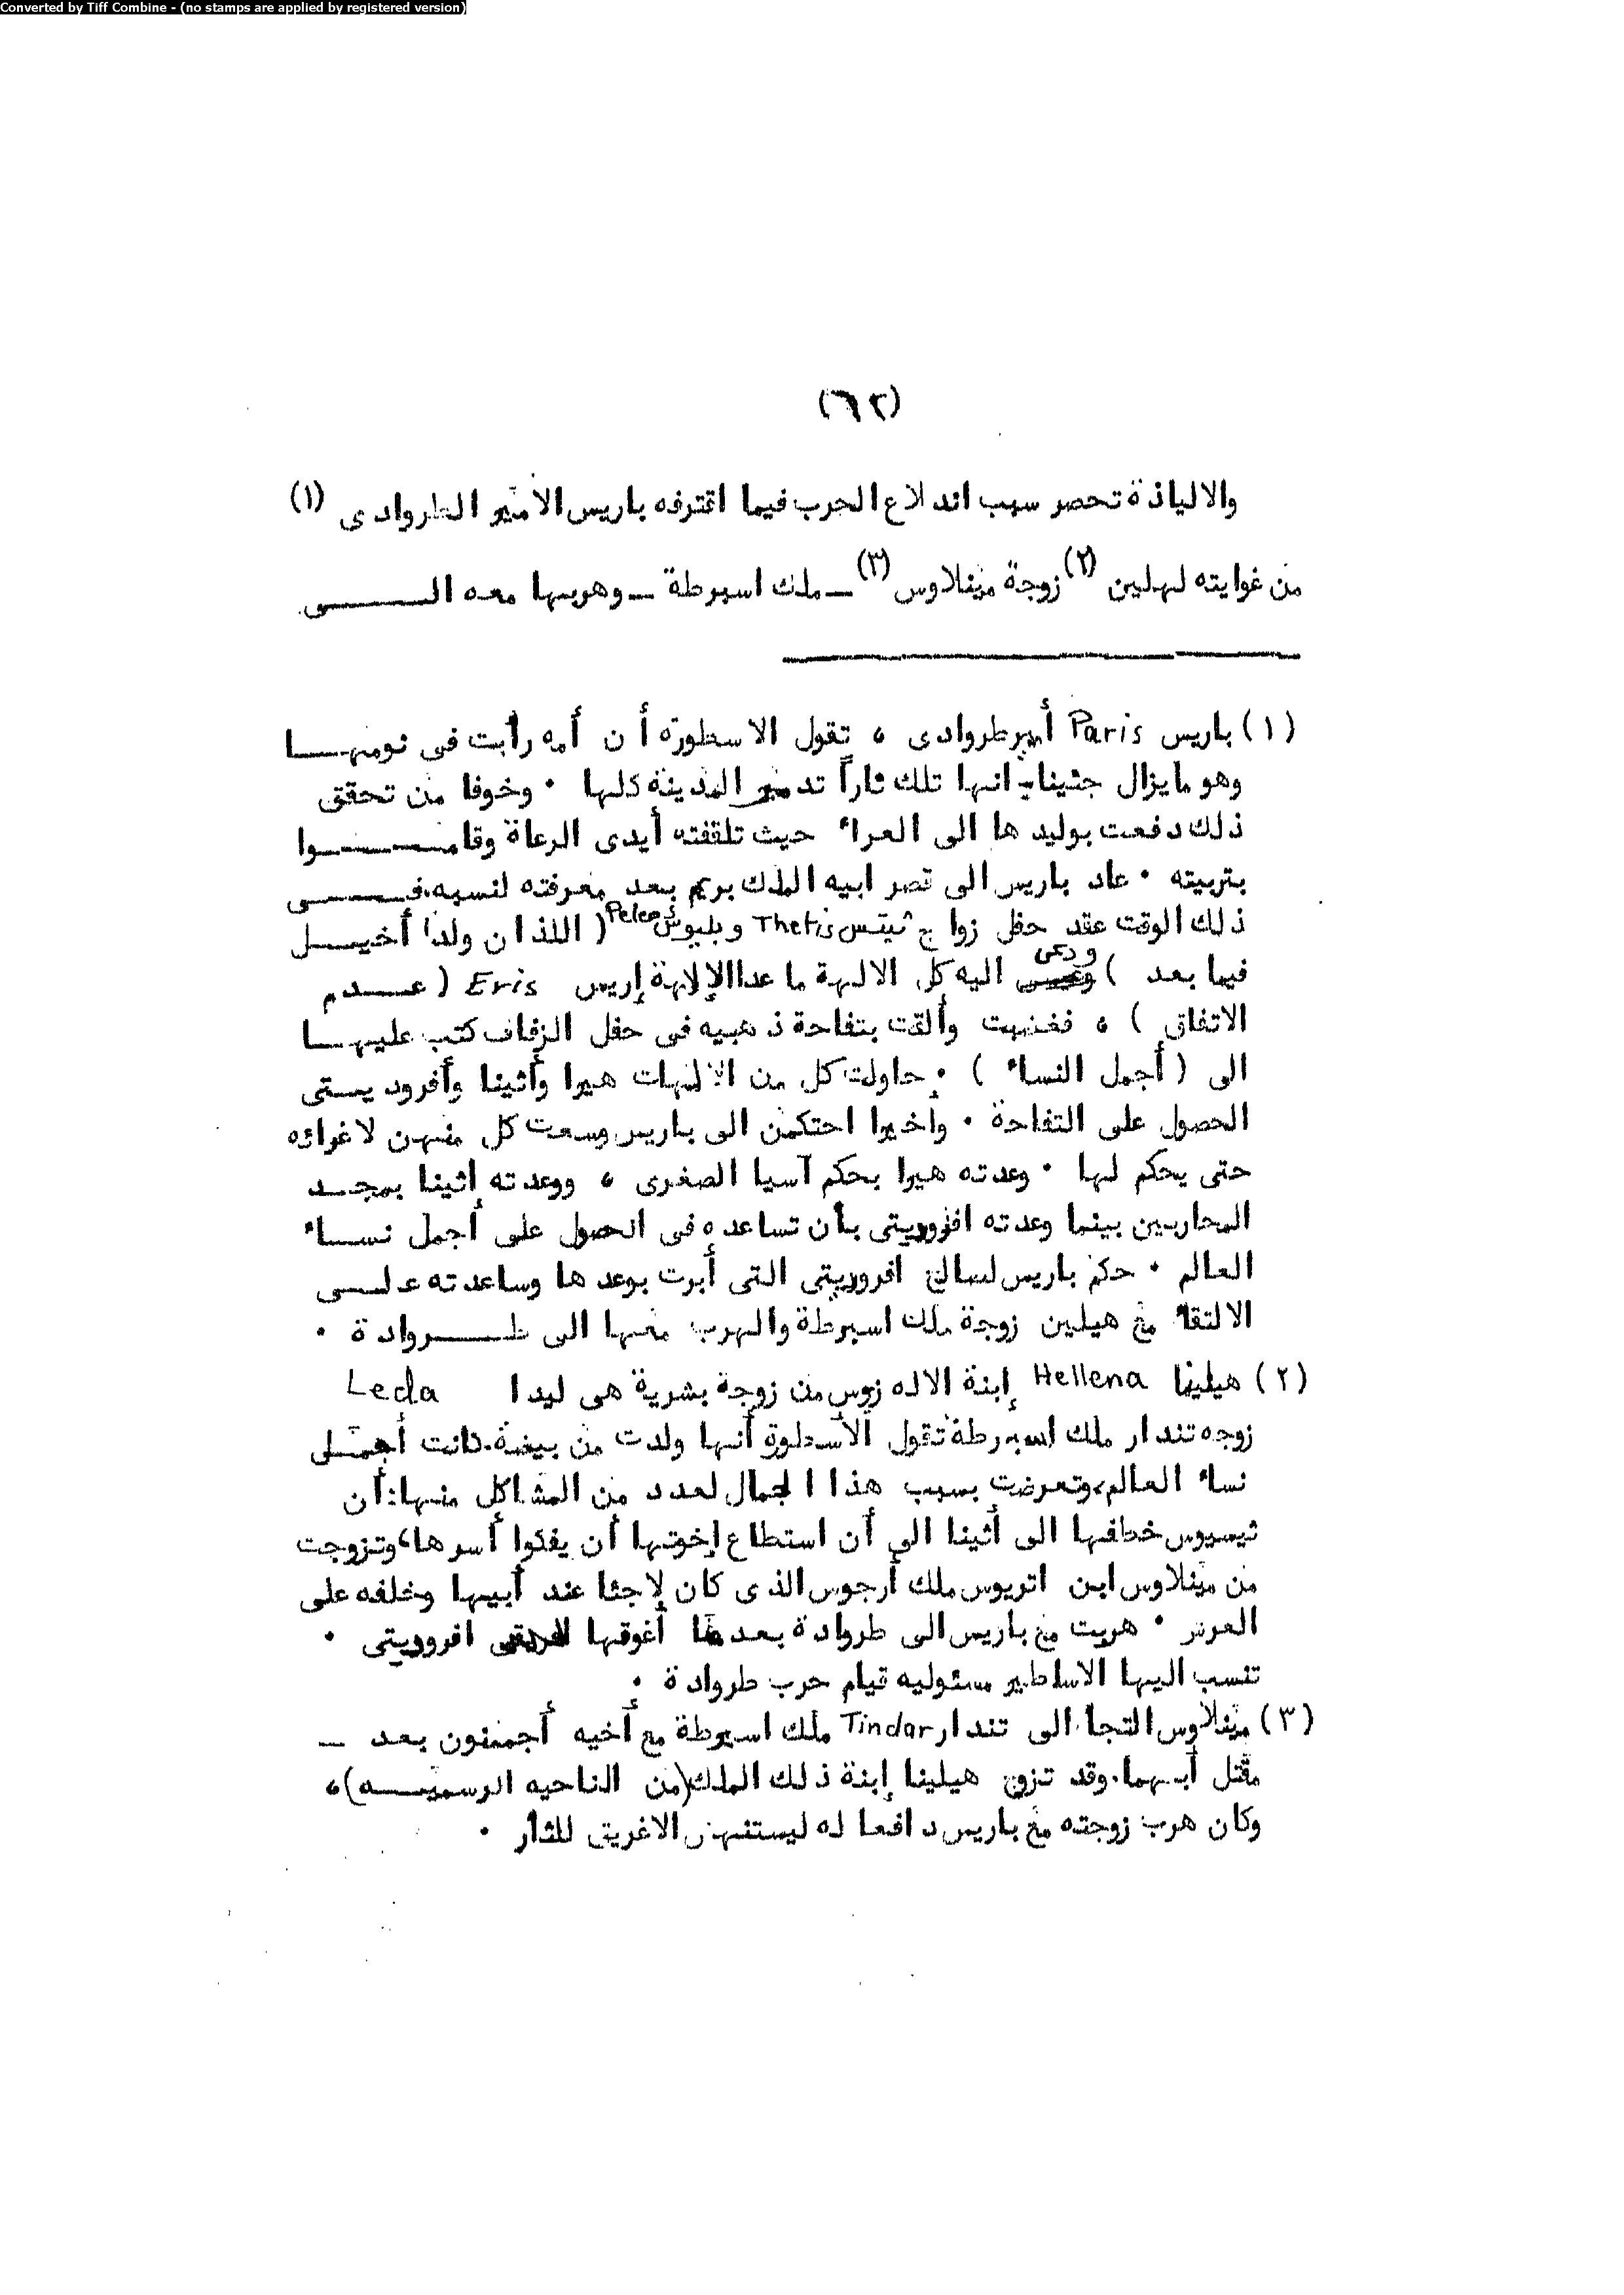 Converted by Tiff Combine - (no stamps are applied by registered version)
(٦٢)
والالياذة تحصر سبب اندلاع الحرب فيما اقترفه باريس الامير الطروادى (١)
من غوايته لهلين (٢) زوجة مينلاوس (٣) ــ ملك اسبرطة ــ وهربها معه الــــــى
(١) باريس Paris أمير طروادى ، تقول الاسطورة أن أمه رأت فى نومهــا
وهو ما يزال جنينا انها تلك ناراً تدمير المدينة كلها ٠ وخوفا من تحقق
ذلك دفعت بوليدها الى العراء حيث تلقفته أيدى الرعاة وقامــــوا
بتربيته ٠ عاد باريس الى قصر ابيه الملك بريم بعد معرفته لنسبه. فـــى
ذلك الوقت عقد حفل زواج ثيتس Thetis وبليوس Peleos ( اللذان ولدا أخيــل
فيما بعد ) ودعى اليه كل الالهة ما عدا الإلاهة إريس Eris ( عــدم
الاتفاق ) ، فغضبت وألقت بتفاحة ذهبيه فى حفل الزفاف كتب عليهــا
الى ( أجمل النساء ) ٠ حاولت كل من الالهات هيرا وأثينا وأفروديستى
الحصول على التفاحة ٠ وأخيرا احتكمن الى باريس وسعت كل منهن لاغرائه
حتى يحكم لها ٠ وعدته هيرا بحكم آسيا الصغرى ، ووعدته إثينا بمجــد
المحاربين بينما وعدته افروديتى بأن تساعده فى الحصول على أجمل نســاء
العالم ٠ حكم باريس لصالح افروديتى التى أبرت بوعدها وساعدته علــى
الالتقاء مع هيلين زوجة ملك اسبرطة والهرب معها الى طــــروادة ٠
(٢) هيلينا Hellena إبنة الاله زوس من زوجة بشرية هى ليدا Leda
زوجه تندار ملك اسبرطة تقول الأسطورة أنها ولدت من بيضة. كانت أجمــل
نساء العالم، وتعرضت بسبب هذا الجمال لعدد من المشاكل منها: أن
ثيسيوس خطفها الى أثينا الى أن استطاع إخوتها أن يفكوا أسرها، وتزوجت
من مينلاوس ابن اتريوس ملك أرجوس الذى كان لاجئا عند أبيها وخلفه على
العرش ٠ هربت مع باريس الى طروادة بعد ما أغوتها افروديتى ٠
تنسب اليها الاساطير مسئوليه قيام حرب طروادة ٠
(٣) مينلاوس التجأ الى تندار Tindar ملك اسبرطة مع أخيه أجممنون بعد ــ
مقتل أبيهما. وقد تزوج هيلينا إبنة ذلك الملك (من الناحيه الرسميــه) ،
وكان هرب زوجته مع باريس دافعا له ليستنهض الاغريق للثأر ٠